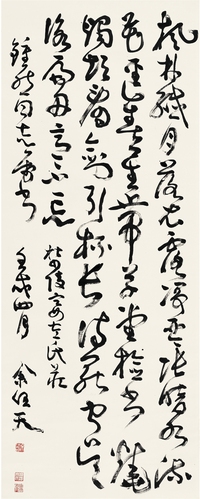 風林纖月落衣露淨琴張暗水流
花徑春星帶草堂檢書燒
燭短看劍引杯長詩罷聞吳
詠扁舟意不忘
杜陵宴左氏莊
同志屬書
壬戌四月 余任天